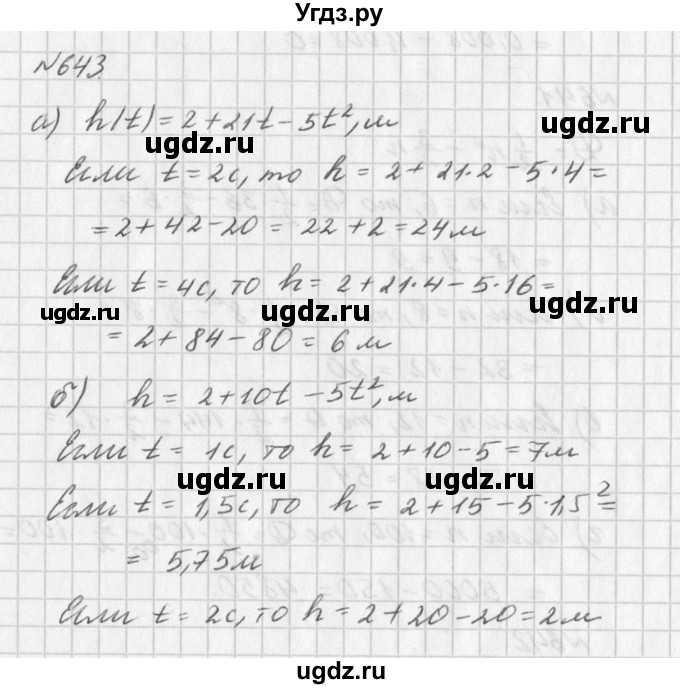 Угдз.ру
№643.
а) h(t) = 2 + 21t – 5t², м
ugdz.ru ugdz.ru
Если t = 2с, то h = 2 + 21·2 – 5·4 =
ugdz.ru ugdz.ru
= 2 + 42 – 20 = 22 + 2 = 24 м
Если t = 4с, то h = 2 + 21·4 – 5·16 =
ugdz.ru ugdz.ru ugdz.ru
= 2 + 84 – 80 = 6 м
б) h = 2 + 10t – 5t², м
ugdz.ru
Если t = 1с, то h = 2 + 10 – 5 = 7м
ugdz.ru ugdz.ru
Если t = 1,5с, то h = 2 + 15 – 5·1,5² =
ugdz.ru
= 5,75м
ugdz.ru
Если t = 2с, то h = 2 + 20 – 20 = 2м
ugdz.ru
ugdz.ru